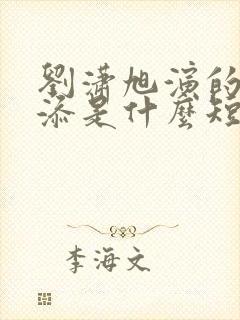 劉瀟旭演的
添是什麼短
李海文